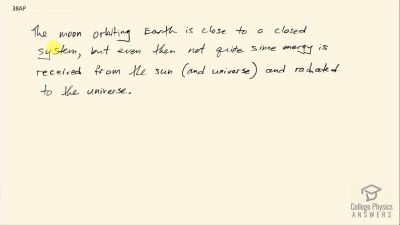 38AP
The moon orbiting Earth is close to a closed
system, but even then not quite since energy is
received from the sun (and universe) and radiated
to the universe.
College Physics
ANSWERS